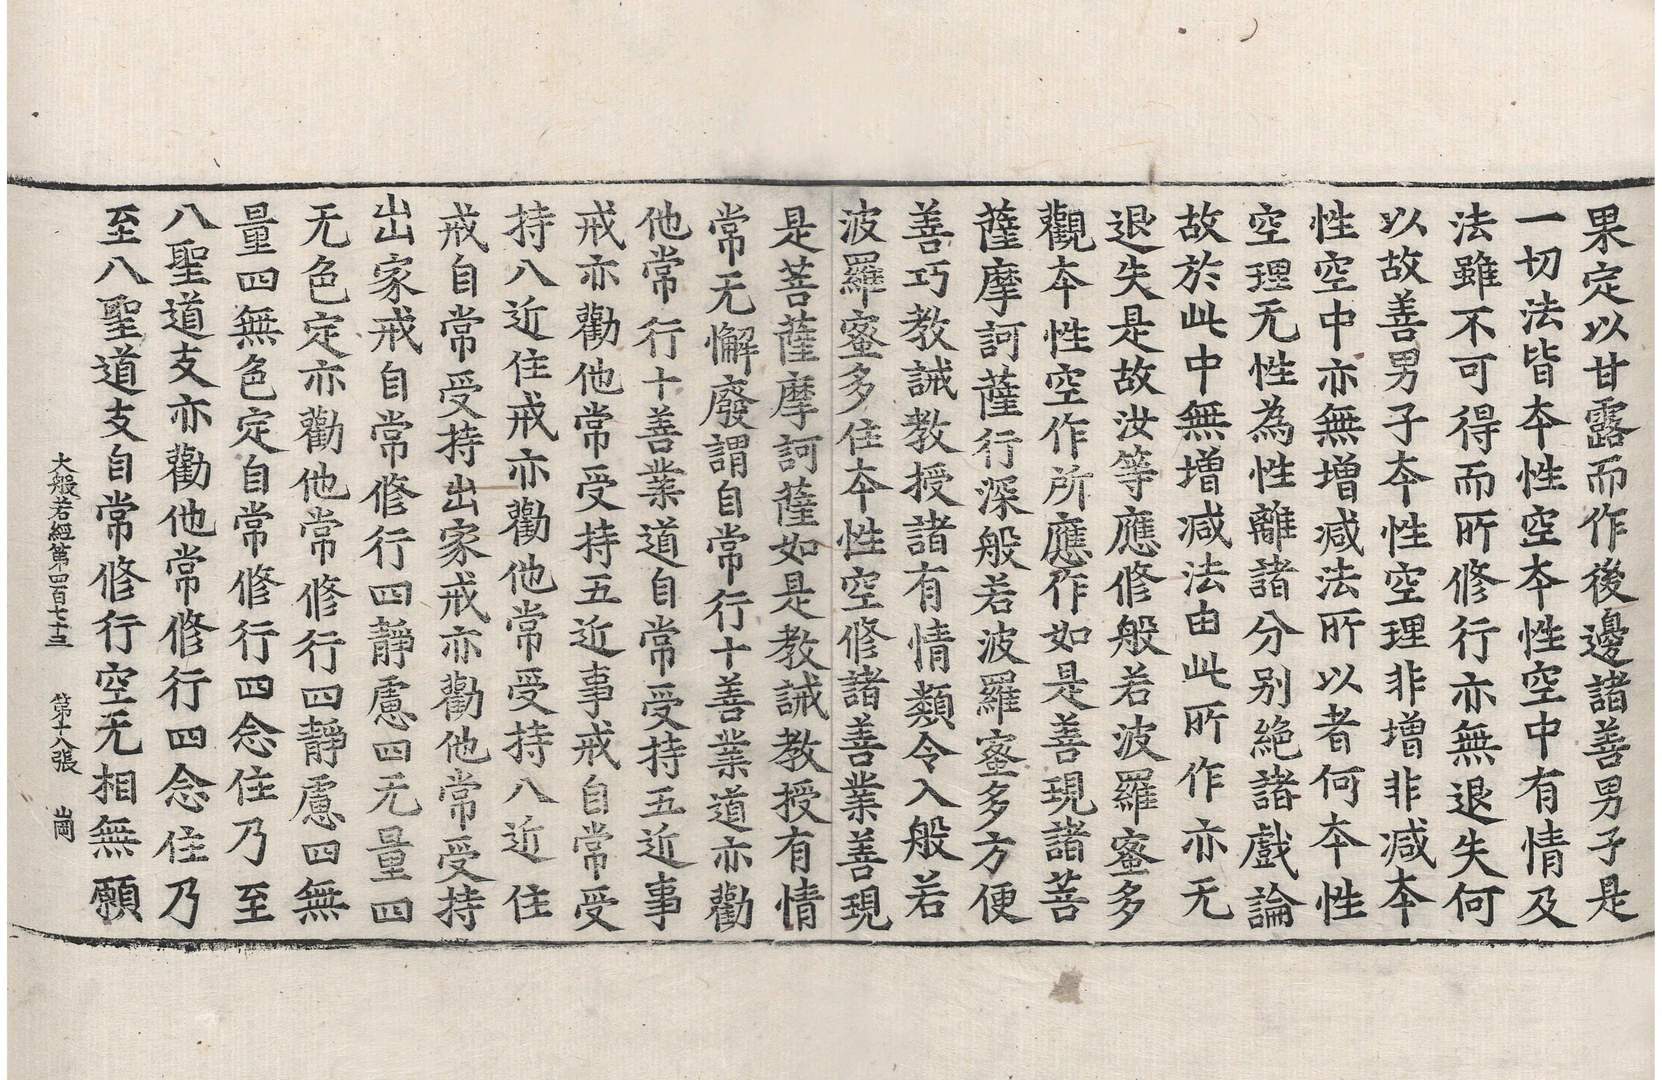 果定以甘露而作後邊諸善男子是
一切法皆本性空本性空中有情及
法雖不可得而所修行亦無退失何
以故善男子本性空理非增非減本
性空中亦無增減法所以者何本性
空理无性為性離諸分別絕諸戲論
故於此中無增減法由此所作亦无
退失是故汝等應修般若波羅蜜多
觀本性空作所應作如是善現諸菩
薩摩訶薩行深般若波羅蜜多方便
善巧教誡教授諸有情類令入般若
波羅蜜多住本性空修諸善業善現
是菩薩摩訶薩如是教誡教授有情
常无懈廢謂自常行十善業道亦勸
他常行十善業道自常受持五近事
戒亦勸他常受持五近事戒自常受
持八近住戒亦勸他常受持八近住
戒自常受持出家戒亦勸他常受持
出家戒自常修行四靜慮四无量四
无色定亦勸他常修行四靜慮四無
量四無色定自常修行四念住乃至
八聖道支亦勸他常修行四念住乃
至八聖道支自常修行空无相無願
大般若經第四百七十三 第十八張 崗